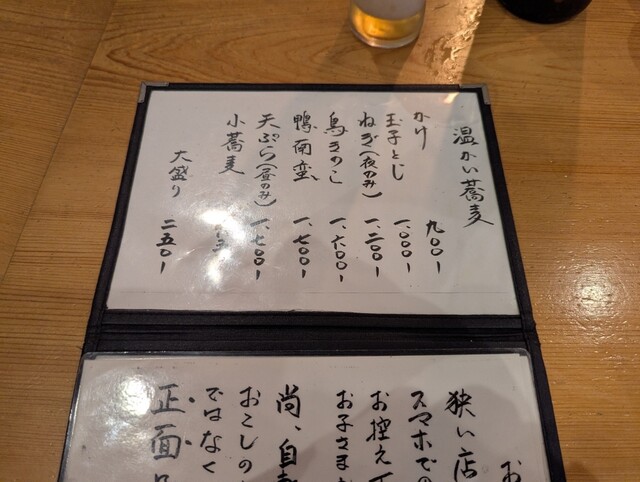 温かい蕎麦
かけ 九〇〇ー
玉子とじ 一、〇〇〇ー
ねぎ(夜のみ) 一、二〇〇ー
鳥きのこ 一、六〇〇ー
鴨南蛮 一、七〇〇ー
天ぷら(昼のみ) 一、七〇〇ー
小蕎麦
大盛り 二五〇ー
お
狭い店
スマホでの
お控え下
お子さま
尚、自転
おこしの
ではなく
正面